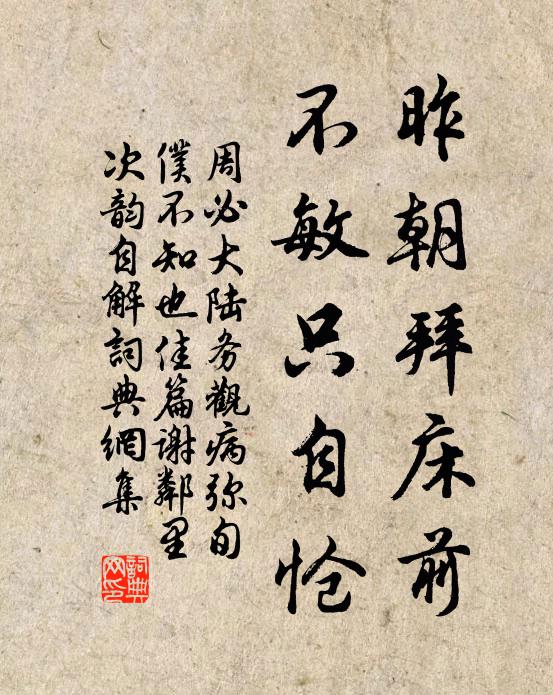 昨朝拜床前
不敏只自怆
周必大陆务觀病弥旬
僕不知也佳篇谢鄰里
次韵自解詞典網集
詞典
网印